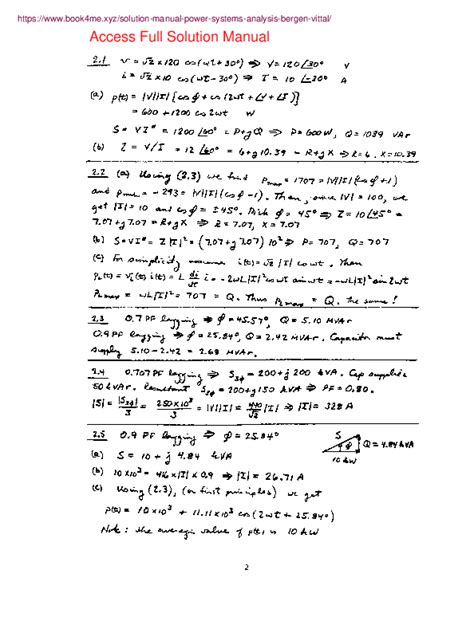 https://www.book4me.xyz/solution-manual-power-systems-analysis-bergen-vittal/
Access Full Solution Manual
2.1 v = √2 x 120 cos(ωt+30°) ⇒ V = 120 ∠30° V
i = √2 x 10 cos(ωt-30°) ⇒ I = 10 ∠-30° A
(a) p(t) = |V||I| [cos φ + cos (2ωt + ∠V + ∠I)]
= 600 + 1200 cos 2ωt W
S = VI* = 1200 ∠60° = P+jQ ⇒ P = 600W, Q = 1039 VAr
(b) Z = V/I = 12 ∠60° = 6+j10.39 = R+jX ⇒ R = 6, X = 10.39
2.2 (a) Using (2.3) we find Pmax = 1707 = |V||I|(cos φ +1)
and pmin = -293 = |V||I|(cos φ -1). Then, since |V| = 100, we
get |I| = 10 and φ = ±45°. Pick φ = 45° ⇒ Z = 10 ∠45° =
7.07 + j7.07 = R+jX ⇒ R = 7.07, X = 7.07
(b) S = VI* = Z |I|² = (7.07 + j7.07) 10² ⇒ P = 707, Q = 707
(c) For simplicity assume i(t) = √2 |I| cos ωt. Then
PL(t) = vL(t) i(t) = L di/dt i = -2ωL|I|² cos ωt sin ωt = -ωL|I|² sin 2ωt
PLmax = ωL|I|² = 707 = Q. Thus PLmax = Q, the same!
2.3 0.7 PF lagging ⇒ φ = 45.57°, Q = 5.10 MVAr
0.9 PF lagging ⇒ φ = 25.84°, Q = 2.42 MVAr. Capacitor must
supply 5.10 - 2.42 = 2.68 MVAr.
2.4 0.707 PF lagging ⇒ S3φ = 200 + j 200 kVA. Cap supplies
50 kVAr. Resultant S3φ = 200 + j150 kVA ⇒ PF = 0.80.
|S| = |S3φ|/3 = 250x10³/3 = |V||I| = 440/√3 |I| ⇒ |I| = 328 A
2.5 0.9 PF lagging ⇒ φ = 25.84°
S
Q = 4.84 kVA
10 kW
(a) S = 10 + j 4.84 kVA
(b) 10 x10³ = 416 x |I| x 0.9 ⇒ |I| = 26.71 A
(c) Using (2.3), (or first principles) we get
p(t) = 10 x10³ + 11.11 x10³ cos (2ωt + 25.84°)
Note: the average value of p(t) is 10 kW
2